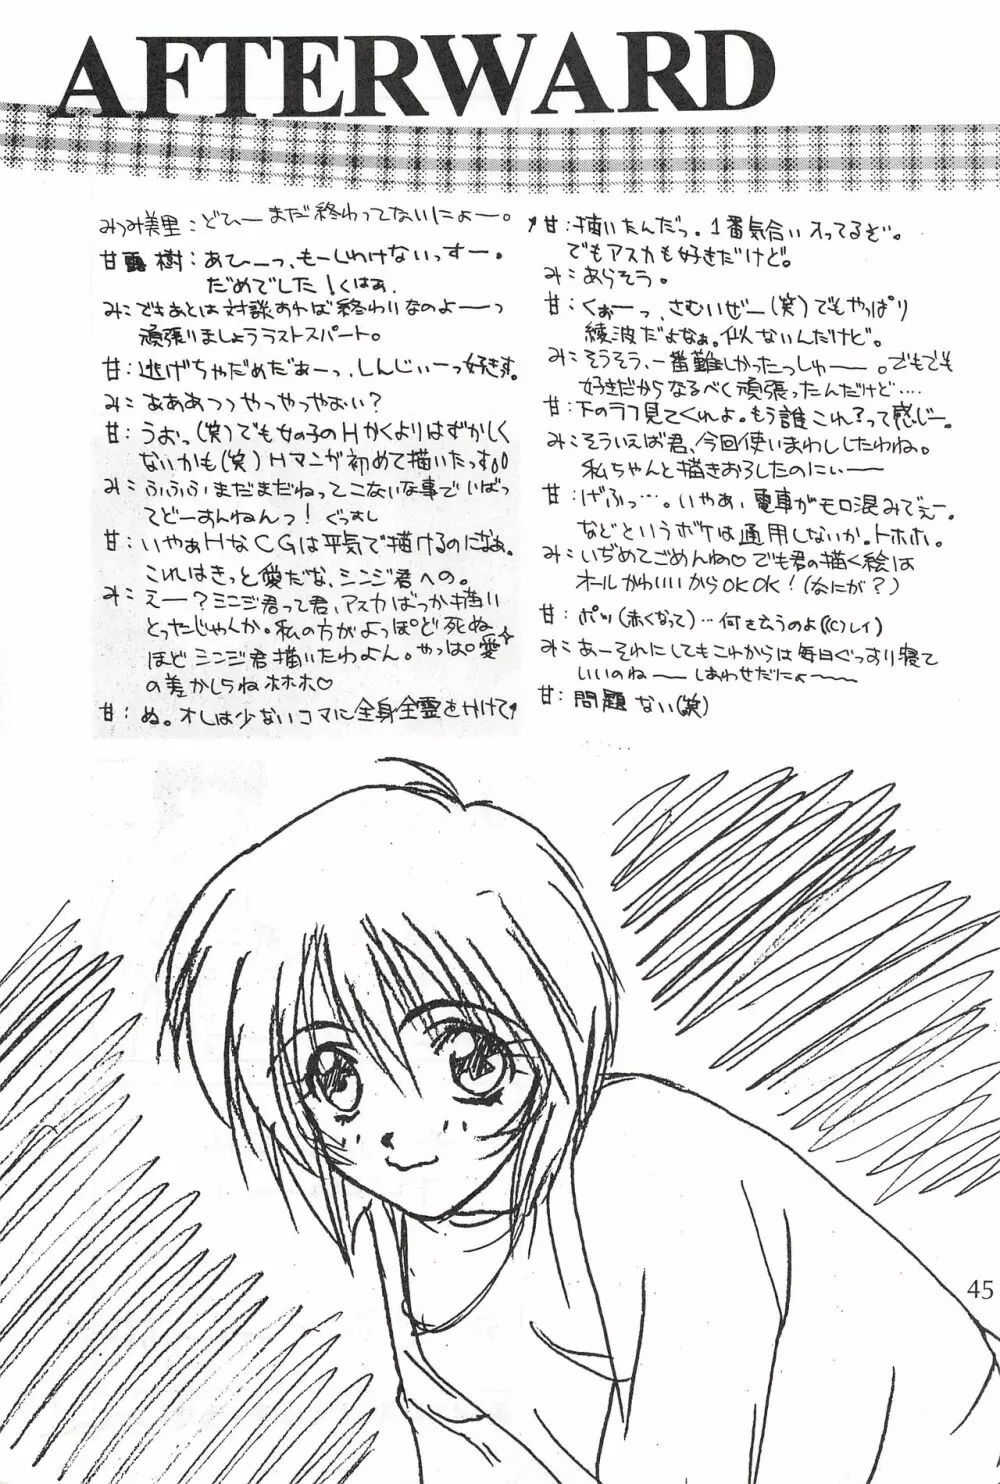 AFTERWARD
みつみ美里：どひーまだ終わってないにょー。
甘露樹：あひーっ、もーしわけないっすー。
だめでした！くはぁ
み：でもあとは対談すれば終わりなのよーっ
頑張りましょうラストスパート。
甘：逃げちゃだめだぁーっ、しんじぃーっ好きです。
み：あああっっやっやっやおい？
甘：うおっ(笑)でも女の子のHかくよりはずかしく
ないかも(笑)Hマンガ初めて描いたっす。。
み：ふふふまだまだねってこないな事でいばっ
てどーすんねんっ！ぐっすし
甘：いやぁHなCGは平気で描けるのになぁ。
これはきっと愛だな、シンジ君への。
み：えー？シンジ君って君、アスカばっか描い
とったじゃんか。私の方がよっぽど死ぬ
ほどシンジ君描いたわよん。やっぱ愛
の差かしらねホホホ♡
甘：ぬ。オレは少ないコマに全身全霊をかけて
甘：描いたんだっ。1番気合い入ってるぞ。
でもアスカも好きだけど。
み：あらそう。
甘：くぉーっ、さむいぜー(笑)でもやっぱり
綾波だよなぁ。似ないんだけど。
み：そうそう、一番難しかったっしゅー。でもでも
好きだからなるべく頑張ったんだけど‥‥
甘：下のラフ見てくれよ。もう誰これ？って感じー。
み：そういえば君、今回使いまわししたわね。
私ちゃんと描きおろしたのにぃー
甘：げふっ…。いやぁ、電車がモロ混みでえー。
などというボケは通用しないか。トホホ。
み：いぢめてごめんね♡でも君の描く絵は
オールかわいいからOKOK！(なにが？)
甘：ポッ(赤くなって)…何を言うのよ((C)レイ)
み：あーそれにしてもこれからは毎日ぐっすり寝て
いいのねーしあわせだにょ〜
甘：問題ない(笑)
45